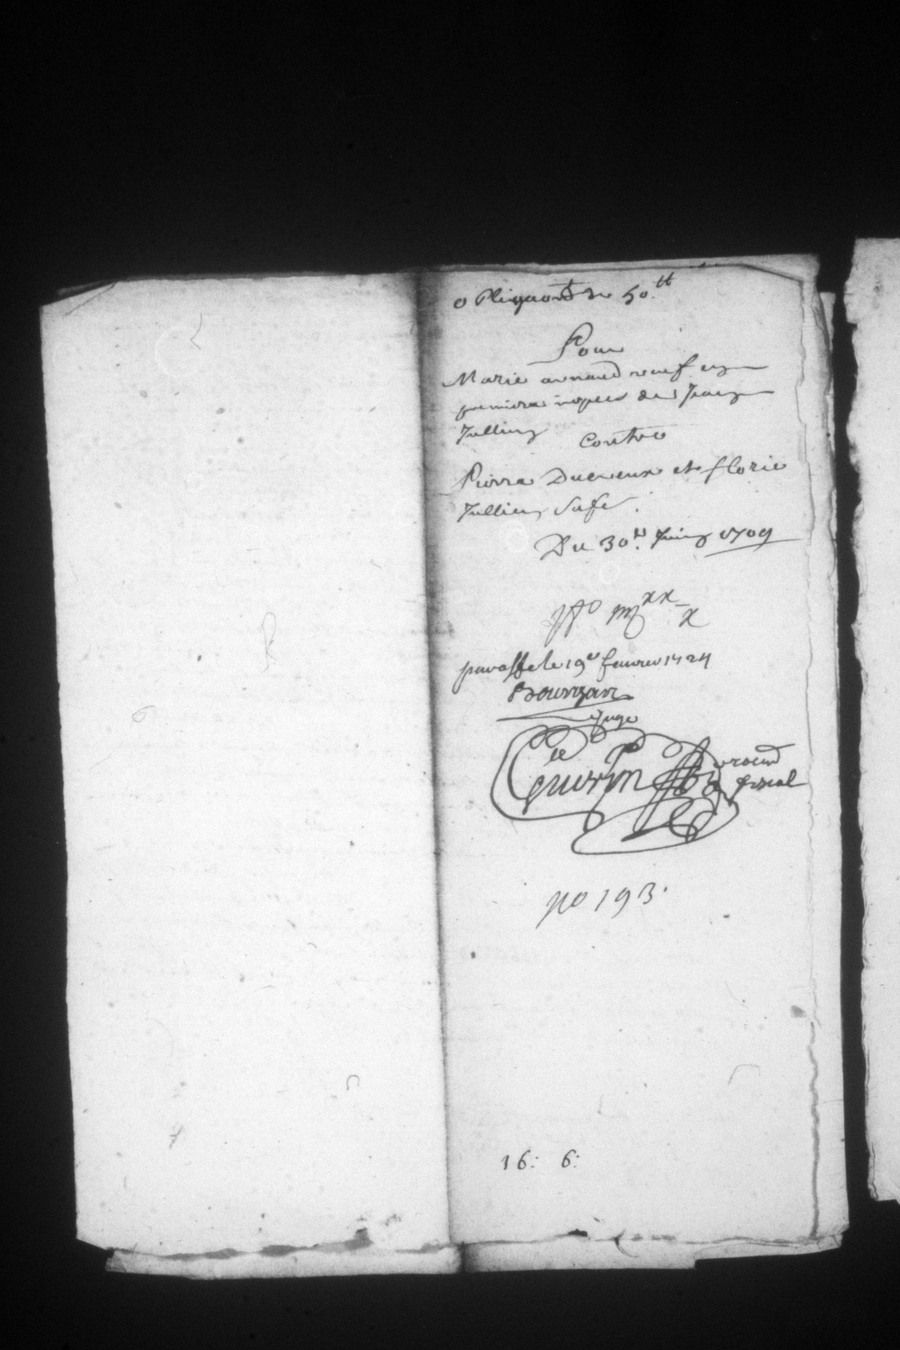 obligaon de 50.tt
Pour
Marie arnaud veufe en
premiere nopces de Jean
Jullien
Contre
Pierre Ducreux et florie
Jullien Safe.
Du 30e. Juin 1709
paraffe le 19e feuvrier 1724
Juge
Guerin procur
fiscal
no 193.
16: 6: